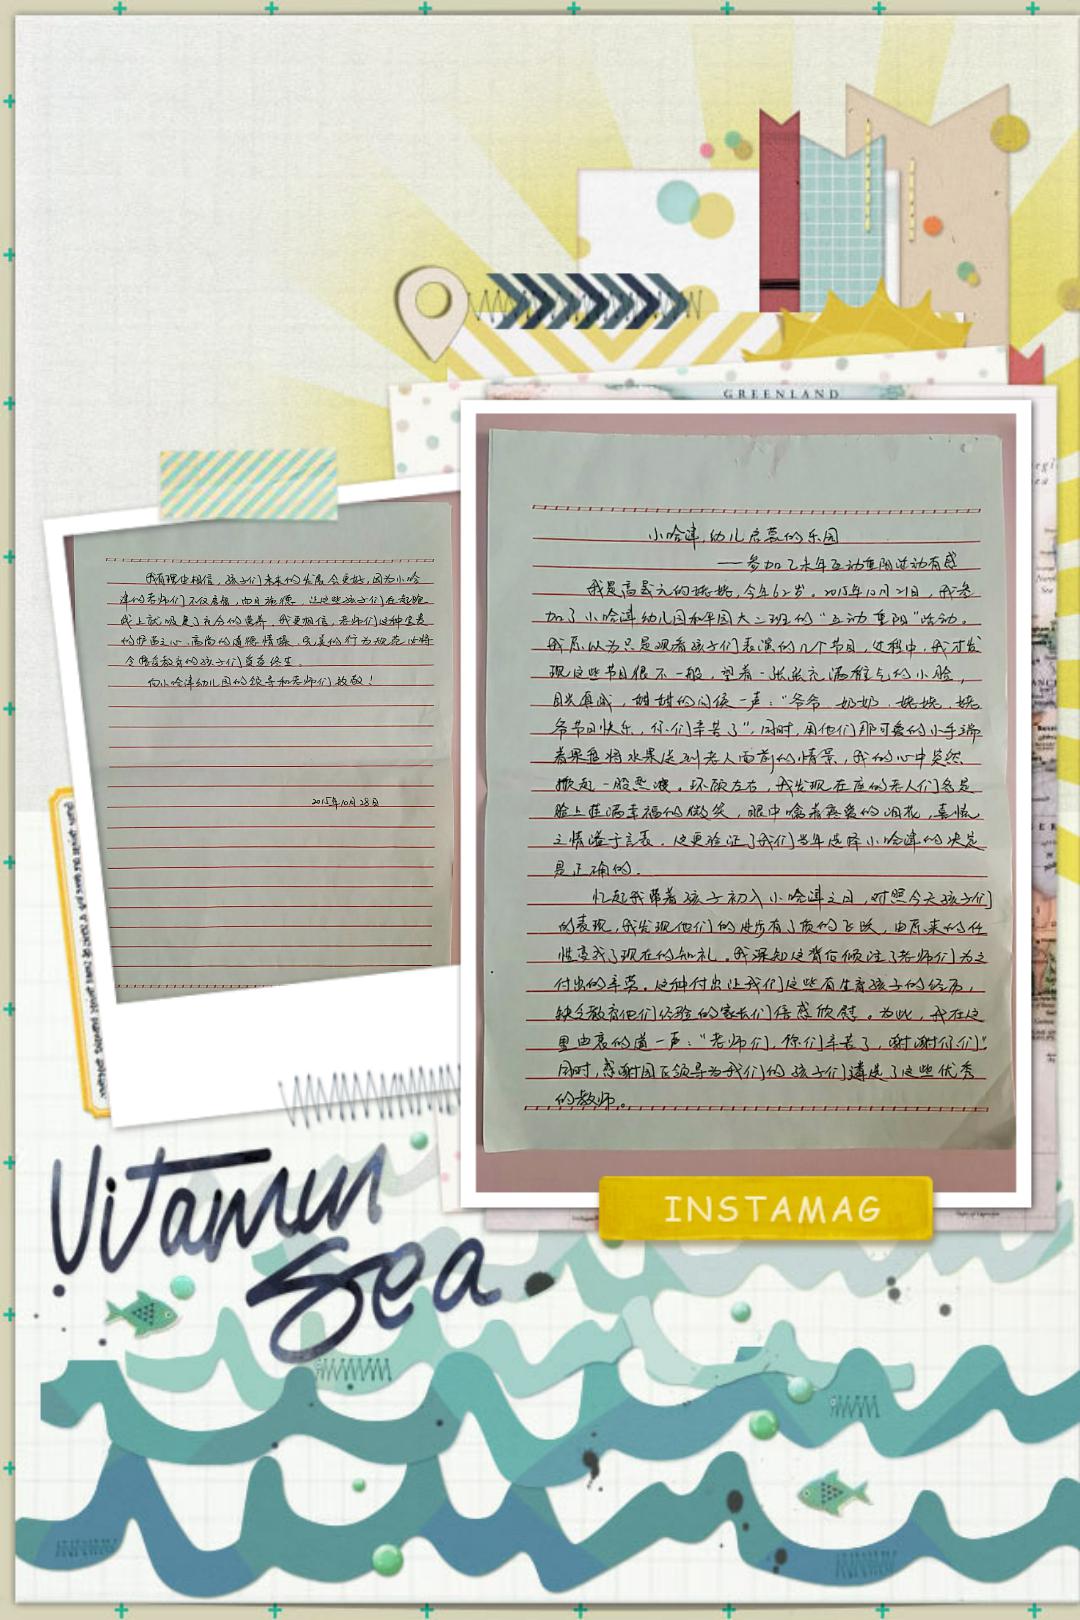 GREENLAND
小哈津,幼儿启蒙的乐园
——参加乙未年互动重阳活动有感
我是高晟元的姥姥,今年62岁。2015年10月21日,我参
加了小哈津幼儿园和平园大二班的“互动重阳”活动。
我原以为只是观看孩子们表演的几个节目,过程中,我才发
现这些节目很不一般,望着一张张充满稚气的小脸,
目光真诚,甜甜的问候一声:“爷爷、奶奶、姥姥、姥
爷节日快乐,你们辛苦了”,同时,用他们那可爱的小手端
着果盘将水果送到老人面前的情景,我的心中突然
掀起一股热浪。环顾左右,我发现在座的老人们各是
脸上挂满幸福的微笑,眼中噙着疼爱的泪花,喜悦
之情溢于言表。这更验证了我们当年选择小哈津的决定
是正确的。
忆起我带着孩子初入小哈津之日,对照今天孩子们
的表现,我发现他们的进步有了质的飞跃,由原来的任
性变成了现在的知礼。我深知这背后倾注了老师们为之
付出的辛劳。这种付出让我们这些有生育孩子的经历,
缺乏教育他们经验的家长们倍感欣慰。为此,我在这
里由衷的道一声:“老师们,你们辛苦了,谢谢你们”。
同时,感谢园区领导为我们的孩子们遴选了这些优秀
的教师。
我有理由相信,孩子们未来的发展会更好,因为小哈
津的老师们不仅启智,而且施德,让这些孩子们在起跑
线上就吸足了充分的营养。我更相信,老师们这种宝贵
的护苗之心、高尚的道德情操、完美的行为规范必将
令受教育的孩子们受益终生。
向小哈津幼儿园的领导和老师们致敬!
2015年10月28日
INSTAMAG
Vitamin
Sea